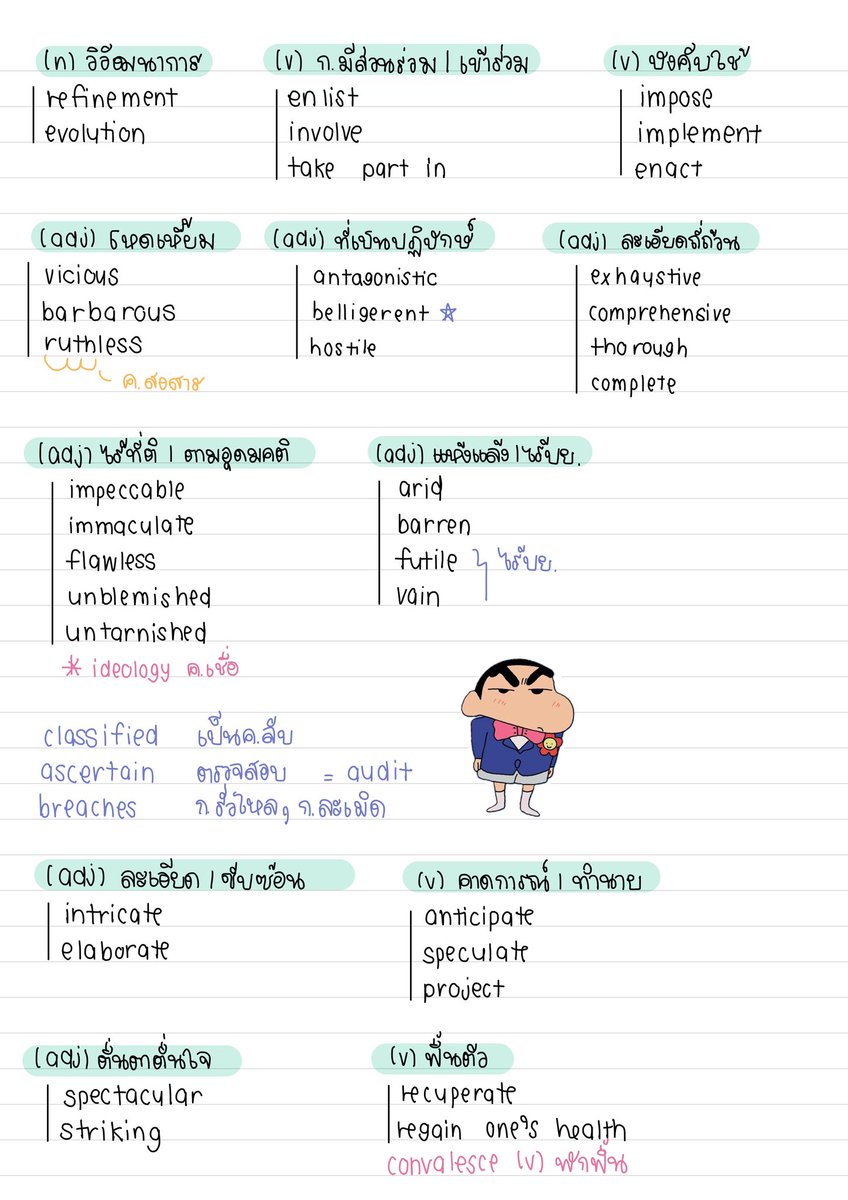 (n) วิวัฒนาการ
refinement
evolution
(v) ก.มีส่วนร่วม / เข้าร่วม
enlist
involve
take part in
(v) บังคับใช้
impose
implement
enact
(adj) โหดเหี้ยม
vicious
barbarous
ruthless
ค.สงสาร
(adj) ที่เป็นปฏิปักษ์
antagonistic
belligerent ☆
hostile
(adj) ละเอียดถี่ถ้วน
exhaystive
comprehensive
thorough
complete
(adj) ไร้ที่ติ / ตามอุดมคติ
impeccable
immaculate
flawless
unblemished
untarnished
* ideology ค.เชื่อ
(adj) แห้งแล้ง / ไร้ปย.
arid
barren
futile
vain
ไร้ปย.
classified เป็นค.ลับ
ascertain ตรวจสอบ = audit
breaches ก.รั่วไหล, ก.ละเมิด
(adj) ละเอียด / ซับซ้อน
intricate
elaborate
(v) คาดการณ์ / ทำนาย
anticipate
speculate
project
(adj) ตื่นตาตื่นใจ
spectacular
striking
(v) ฟื้นตัว
recuperate
regain one's health
convalesce (v) พักฟื้น